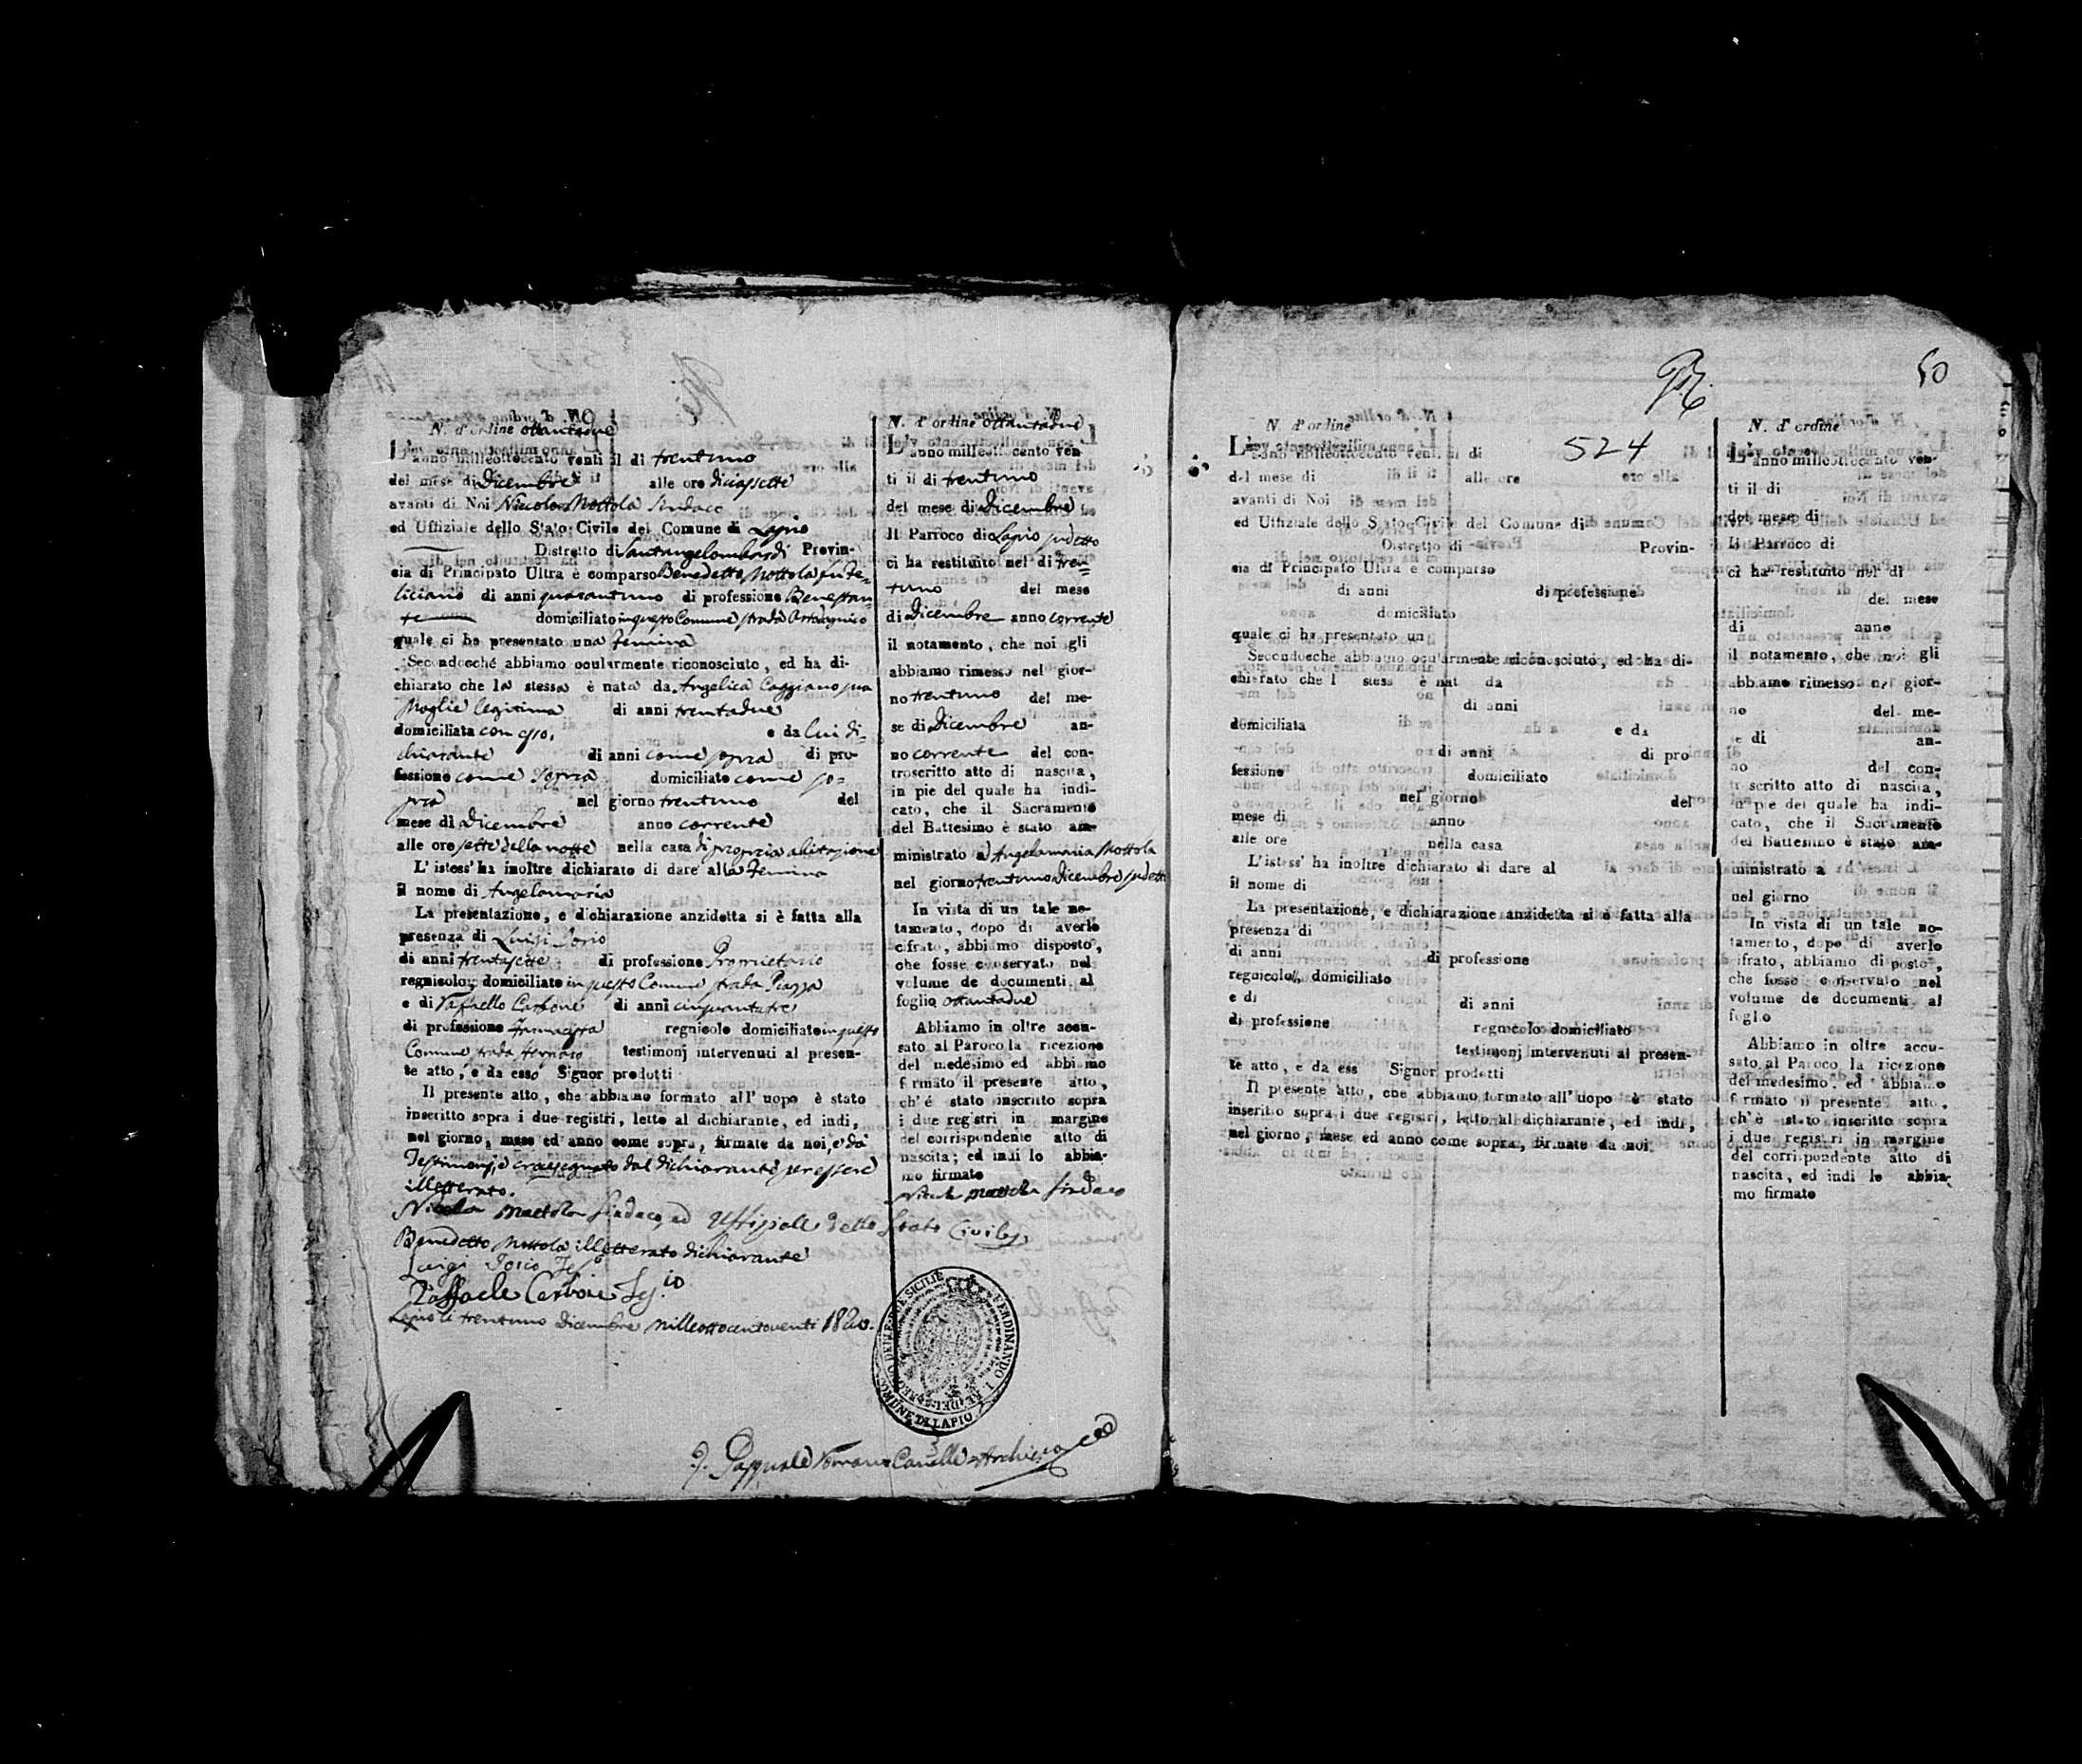 N. d'ordine ottantadue
L'anno milleottocento venti il di trentuno
del mese di Dicembre alle ore diciassette
avanti di Noi Niccola Mottola Sindaco
ed Uffiziale dello Stato Civile del Comune di Lapio
Distretto di Santangelombardi Provin-
cia di Principato Ultra è comparso Benedetto Mottola fu Fe-
liciano di anni quarantuno di professione Benestan-
te domiciliato in questo Comune strada
quale ci ha presentato una Femina
Secondocchè abbiamo ocularmente riconosciuto, ed ha di-
chiarato che la stessa è nata da Angelica Caggiano sua
Moglie legitima di anni trentadue
domiciliata con esso, e da lui di-
chiarante di anni come sopra di pro-
fessione come sopra domiciliato come so-
pra nel giorno trentuno del
mese di Dicembre anno corrente
alle ore sette della notte nella casa di propria abitazione
L'istess' ha inoltre dichiarato di dare alla Femina
il nome di Angelamaria
La presentazione, e dichiarazione anzidetta si è fatta alla
presenza di Luigi Iorio
di anni trentasette di professione Proprietario
regnicolo, domiciliato in questo Comune strada Piazza
e di Raffaello Carbone di anni cinquantatre
di professione Farmacista regnicolo domiciliato in questo
Comune strada testimonj intervenuti al presen-
te atto, e da esso Signor prodotti
Il presente atto, che abbiamo formato all' uopo è stato
inscritto sopra i due registri, letto al dichiarante, ed indi,
nel giorno, mese ed anno come sopra, firmato da noi, e da
Testimonj, e crocesegnato dal dichiarante per essere
illetterato.
Nicola Mottola Sindaco ed Uffiziale dello Stato Civile
Benedetto Mottola illetterato dichiarante
Luigi Iorio Tes.o
Raffaele Carbone Tes.io
Lapio li trentuno Dicembre milleottocentoventi 1820.
N. d'ordine ottantadue
L'anno milleottocento ven-
ti il di trentuno
del mese di Dicembre
Il Parroco di Lapio sudetto
ci ha restituito nel di tren-
tuno del mese
di Dicembre anno corrente
il notamento, che noi gli
abbiamo rimesso nel gior-
no trentuno del me-
se di Dicembre an-
no corrente del con-
troscritto atto di nascita,
in piè del quale ha indi-
cato, che il Sacramento
del Battesimo è stato am-
ministrato a Angelamaria Mottola
nel giorno trentuno Dicembre sudetto
In vista di un tale no-
tamento, dopo di averlo
cifrato, abbiamo disposto,
che fosse conservato nel
volume de documenti al
foglio ottantadue
Abbiamo in oltre accu-
sato al Paroco la ricezione
del medesimo ed abbiamo
formato il presente atto,
ch'è stato inscritto sopra
i due registri in margine
del corrispondente atto di
nascita; ed indi lo abbia-
mo firmato
Nicola Mottola Sindaco
FERDINANDO I. RE DEL REGNO DELLE DUE SICILIE
COMUNE DI LAPIO
50
N. d'ordine
524
L'anno milleottocento venti il di
del mese di alle ore
avanti di Noi
ed Uffiziale dello Stato Civile del Comune di
Distretto di Provin-
cia di Principato Ultra è comparso
di anni di professione
domiciliato
quale ci ha presentato un
Secondocchè abbiamo ocularmente riconosciuto, ed ha di-
chiarato che l stess è nat da
di anni
domiciliata e da
di anni di pro
fessione domiciliato
nel giorno del
mese di anno
alle ore nella casa
L'istess' ha inoltre dichiarato di dare al
il nome di
La presentazione, e dichiarazione anzidetta si è fatta alla
presenza di
di anni di professione
regnicolo, domiciliato
e di di anni
di professione regnicolo domiciliato
testimonj intervenuti al presen-
te atto, e da ess Signor prodotti
Il presente atto, che abbiamo formato all' uopo è stato
inscritto sopra i due registri, letto al dichiarante, ed indi,
nel giorno, mese ed anno come sopra, firmate da noi
N. d'ordine
L'anno milleottocento ven-
ti il di
del mese di
Il Parroco di
ci ha restituito nel di
del mese
di anno
il notamento, che noi gli
abbiamo rimesso nel gior-
no del me-
se di an-
no del con-
troscritto atto di nascita,
in piè del quale ha indi-
cato, che il Sacramento
del Battesimo è stato am-
ministrato a
nel giorno
In vista di un tale no-
tamento, dopo di averlo
cifrato, abbiamo disposto,
che fosse conservato nel
volume de documenti al
foglio
Abbiamo in oltre accu-
sato al Paroco la ricezione
del medesimo, ed abbiamo
formato il presente atto,
ch'è stato inscritto sopra
i due registri in margine
del corrispondente atto di
nascita, ed indi lo abbia-
mo firmato